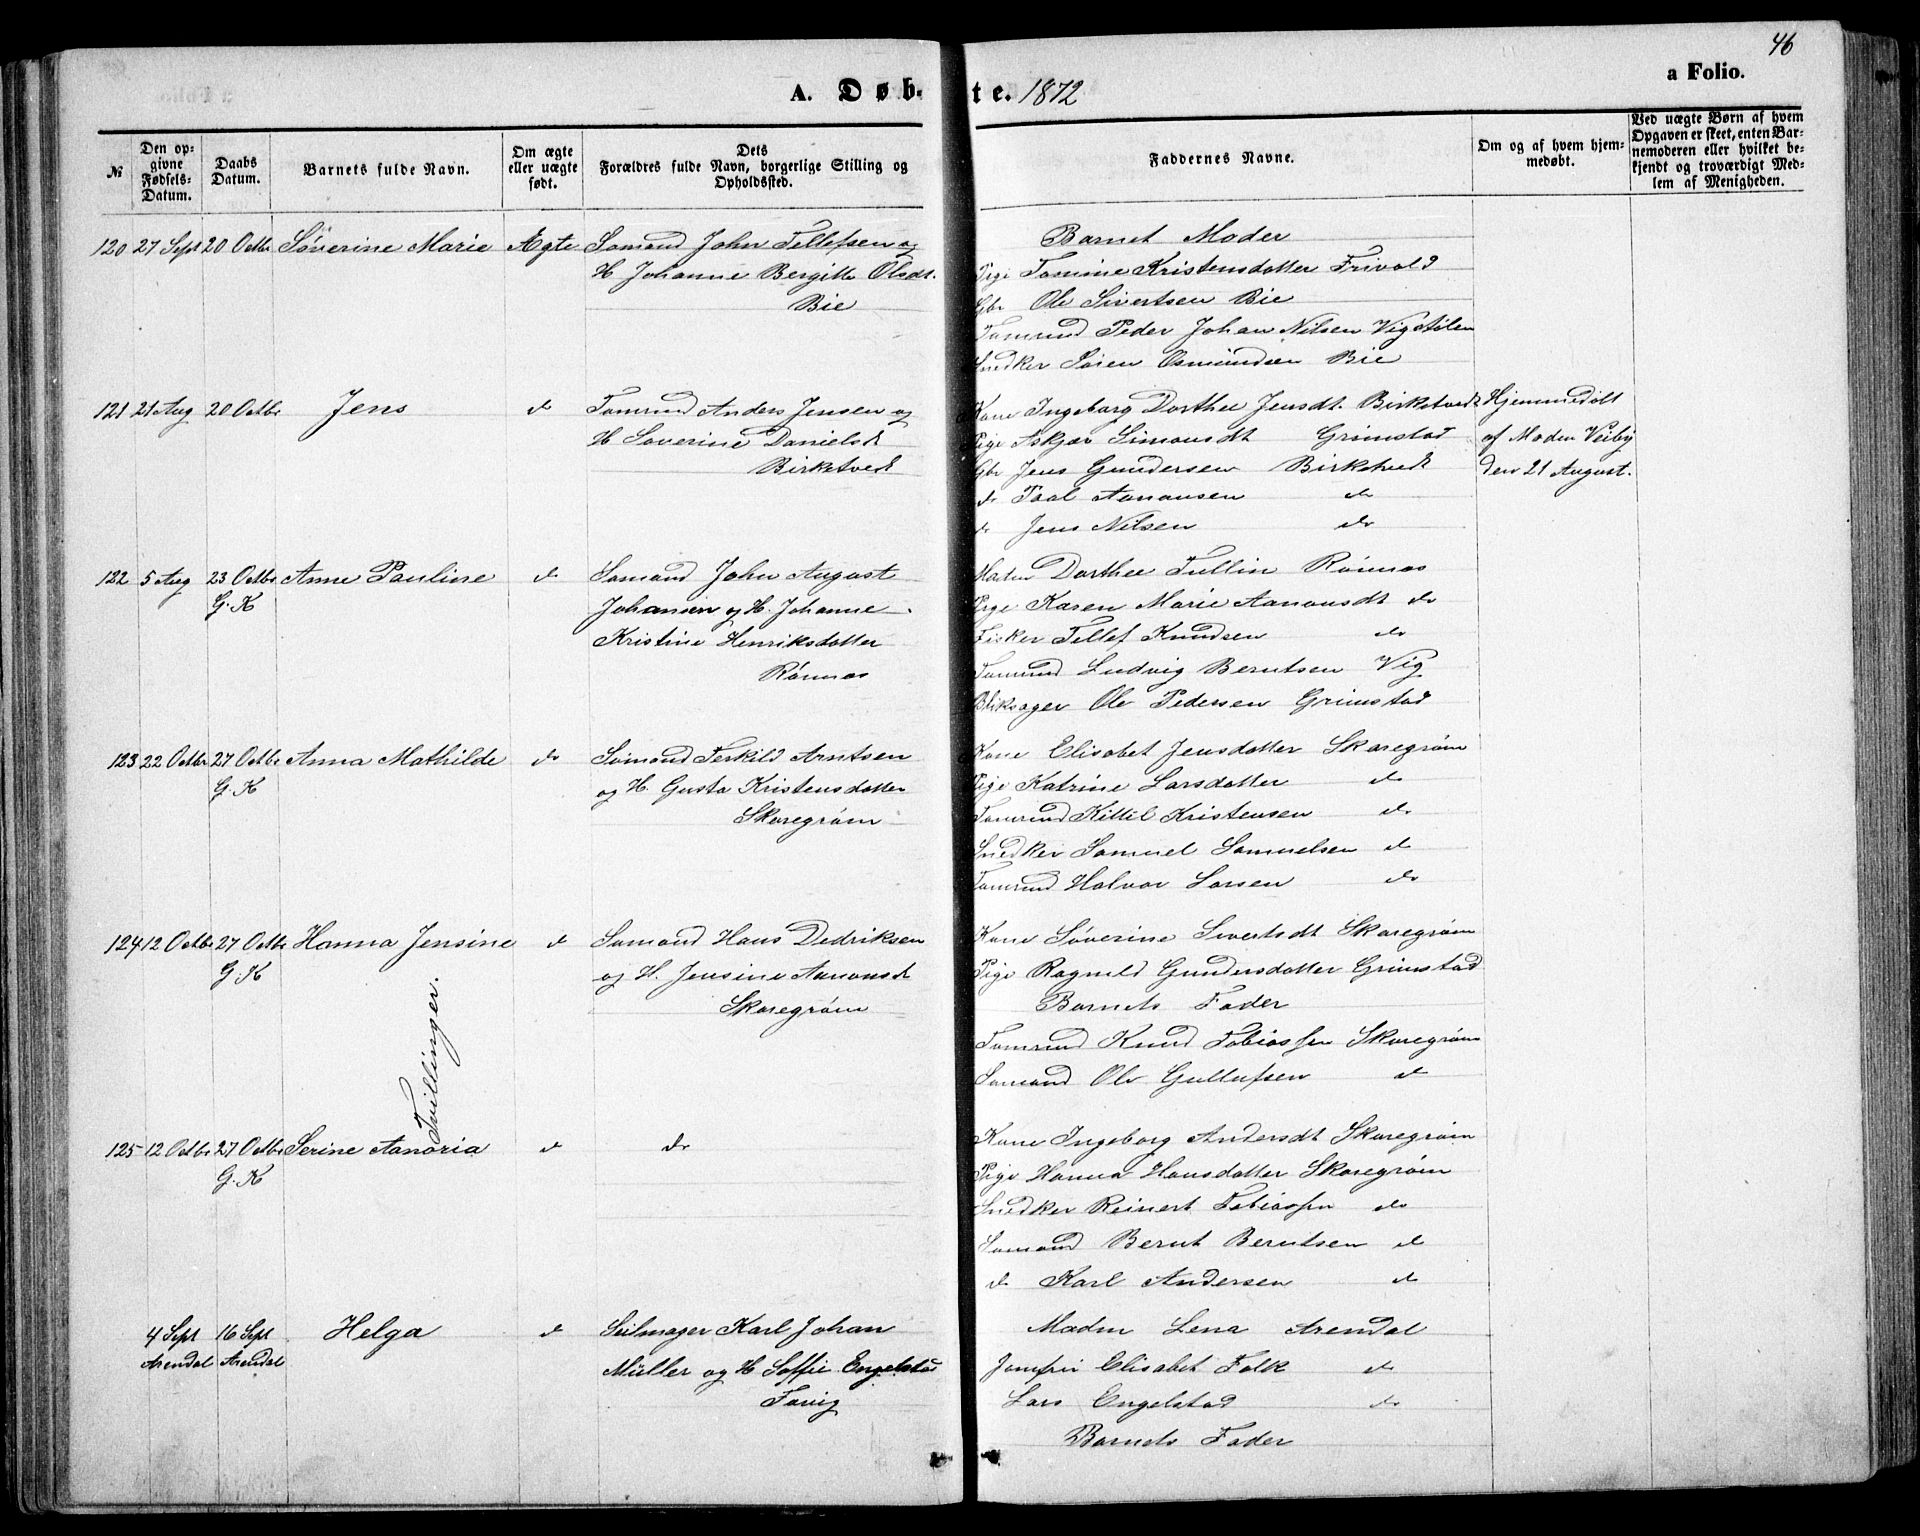 46
A. Døb- te. 1872
a Folio.
№
Den opgivne Fødsels-Datum.
Daabs Datum.
Barnets fulde Navn.
Om ægte eller uægte født.
Dets Forældres fulde Navn, borgerlige Stilling og Opholdssted.
Faddernes Navne.
Om og af hvem hjemmedøbt.
Ved uægte Børn af hvem Opgaven er skeet, enten Barnemoderen eller hvilket bekjendt og troværdigt Medlem af Menigheden.
120 27 Sept 20 Octbr Søverine Marie Ægte Sømand John Tellefsen og
H Johanne Bergitte Olsdt.
Bie
Barnet Moder
Pige Tomine Kristensdatter Frivold
Gbr Ole Sivertsen Bie
Tømrmd Peder Johan Nilsen Vigstølen
Snedker Søren Osmundsen Bie
121 21 Aug 20 Octbr Jens do Tømrmd Anders Jensen og
H Søverine Danielsdt
Birketvedt
Kone Ingeborg Dorthee Jensdt. Birketvedt
Pige Askjær Simonsdt Grimstad
Gbr Jens Gundersen Birketvedt
do Paal Aanonsen do
do Jens Nilsen do
Hjemmedøbt
af Madm Veiby
den 21 August.
122 5 Aug 23 Octbr Anne Pauline do Sømand John August
G. K
Johansen og H. Johanne
Kristine Henriksdatter
Rønnes
Madm Dorthee Tullin Rønnes
Pige Karen Marie Aanonsdt do
Fisker Tellef Knudsen do
Tømrmd Ludvig Berntsen Vig
Bliksager Ole Pedersen Grimstad
123 22 Octbr 27 Octbr Anna Mathilde do Sømand Terkild Arntsen
G. K
og H. Gusta Kristensdatter
Skaregrøm
Kone Elisabet Jensdatter Skaregrøm
Pige Katrine Larsdatter do
Tømrmd Kittil Kristensen do
Snedker Samuel Samuelsen do
Tømrmd Halvor Larsen do
124 12 Octbr 27 Octbr Hanna Jensine do Sømand Hans Dedriksen
G. K
og H. Jensine Aanonsdt
Skaregrøm
Kone Søverine Sivertsdt Skaregrøm
Pige Ragnild Gundersdatter Grimstad
Barnets Fader
Tømrmd Knud Tobiassen Skaregrøm
Sømand Ole Gullufsen do
Tvillinger.
125 12 Octbr 27 Octbr Serine Aanoria do do
G. K
Kone Ingeborg Andersdt Skaregrøm
Pige Hanna Hansdatter Skaregrøm
Snedker Reinert Tobiassen do
Sømand Bernt Berntsen do
do Karl Andersen do
4 Sept 16 Sept Helga do Seilmager Karl Johan
Arendal Arendal
Müller og H Soffie Engelstad
Favig
Madm Lena Arendal
Jomfru Elisabet Falk do
Lars Engelstad do
Barnets Fader